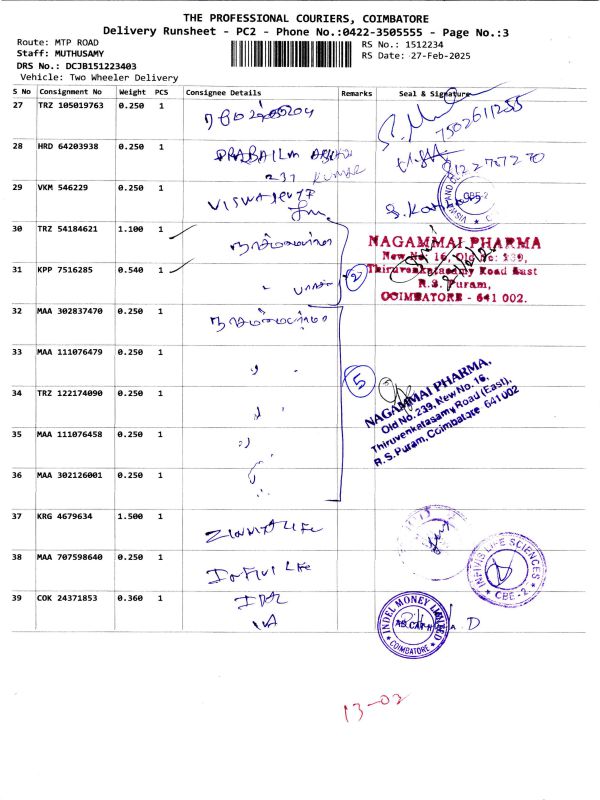 THE PROFESSIONAL COURIERS, COIMBATORE
Delivery Runsheet - PC2 - Phone No.:0422-3505555 - Page No.:3
Route: MTP ROAD
RS No.: 1512234
Staff: MUTHUSAMY
RS Date: 27-Feb-2025
DRS No.: DCJB151223403
Vehicle: Two Wheeler Delivery
S No Consignment No Weight PCS Consignee Details Remarks Seal & Signature
27 TRZ 105019763 0.250 1
7502611255
28 HRD 64203938 0.250 1
237 KUMAR
29 VKM 546229 0.250 1
CBE-2
30 TRZ 54184621 1.100 1
NAGAMMAI PHARMA
New No. 16, Old No: 239,
31 KPP 7516285 0.540 1
2
Thiruvenkatasamy Road East
R.S. Puram,
COIMBATORE - 641 002.
32 MAA 302837470 0.250 1
33 MAA 111076479 0.250 1
5
NAGAMMAI PHARMA,
Old No. 239, New No. 16,
Thiruvenkatasamy Road (East),
R.S. Puram, Coimbatore 641 002
34 TRZ 122174090 0.250 1
35 MAA 111076458 0.250 1
36 MAA 302126001 0.250 1
37 KRG 4679634 1.500 1
LIFE
38 MAA 707598640 0.250 1
LIFE
INFIVIS LIFE SCIENCES
CBE-2
39 COK 24371853 0.360 1
INDEL MONEY LIMITED
COIMBATORE
13-02